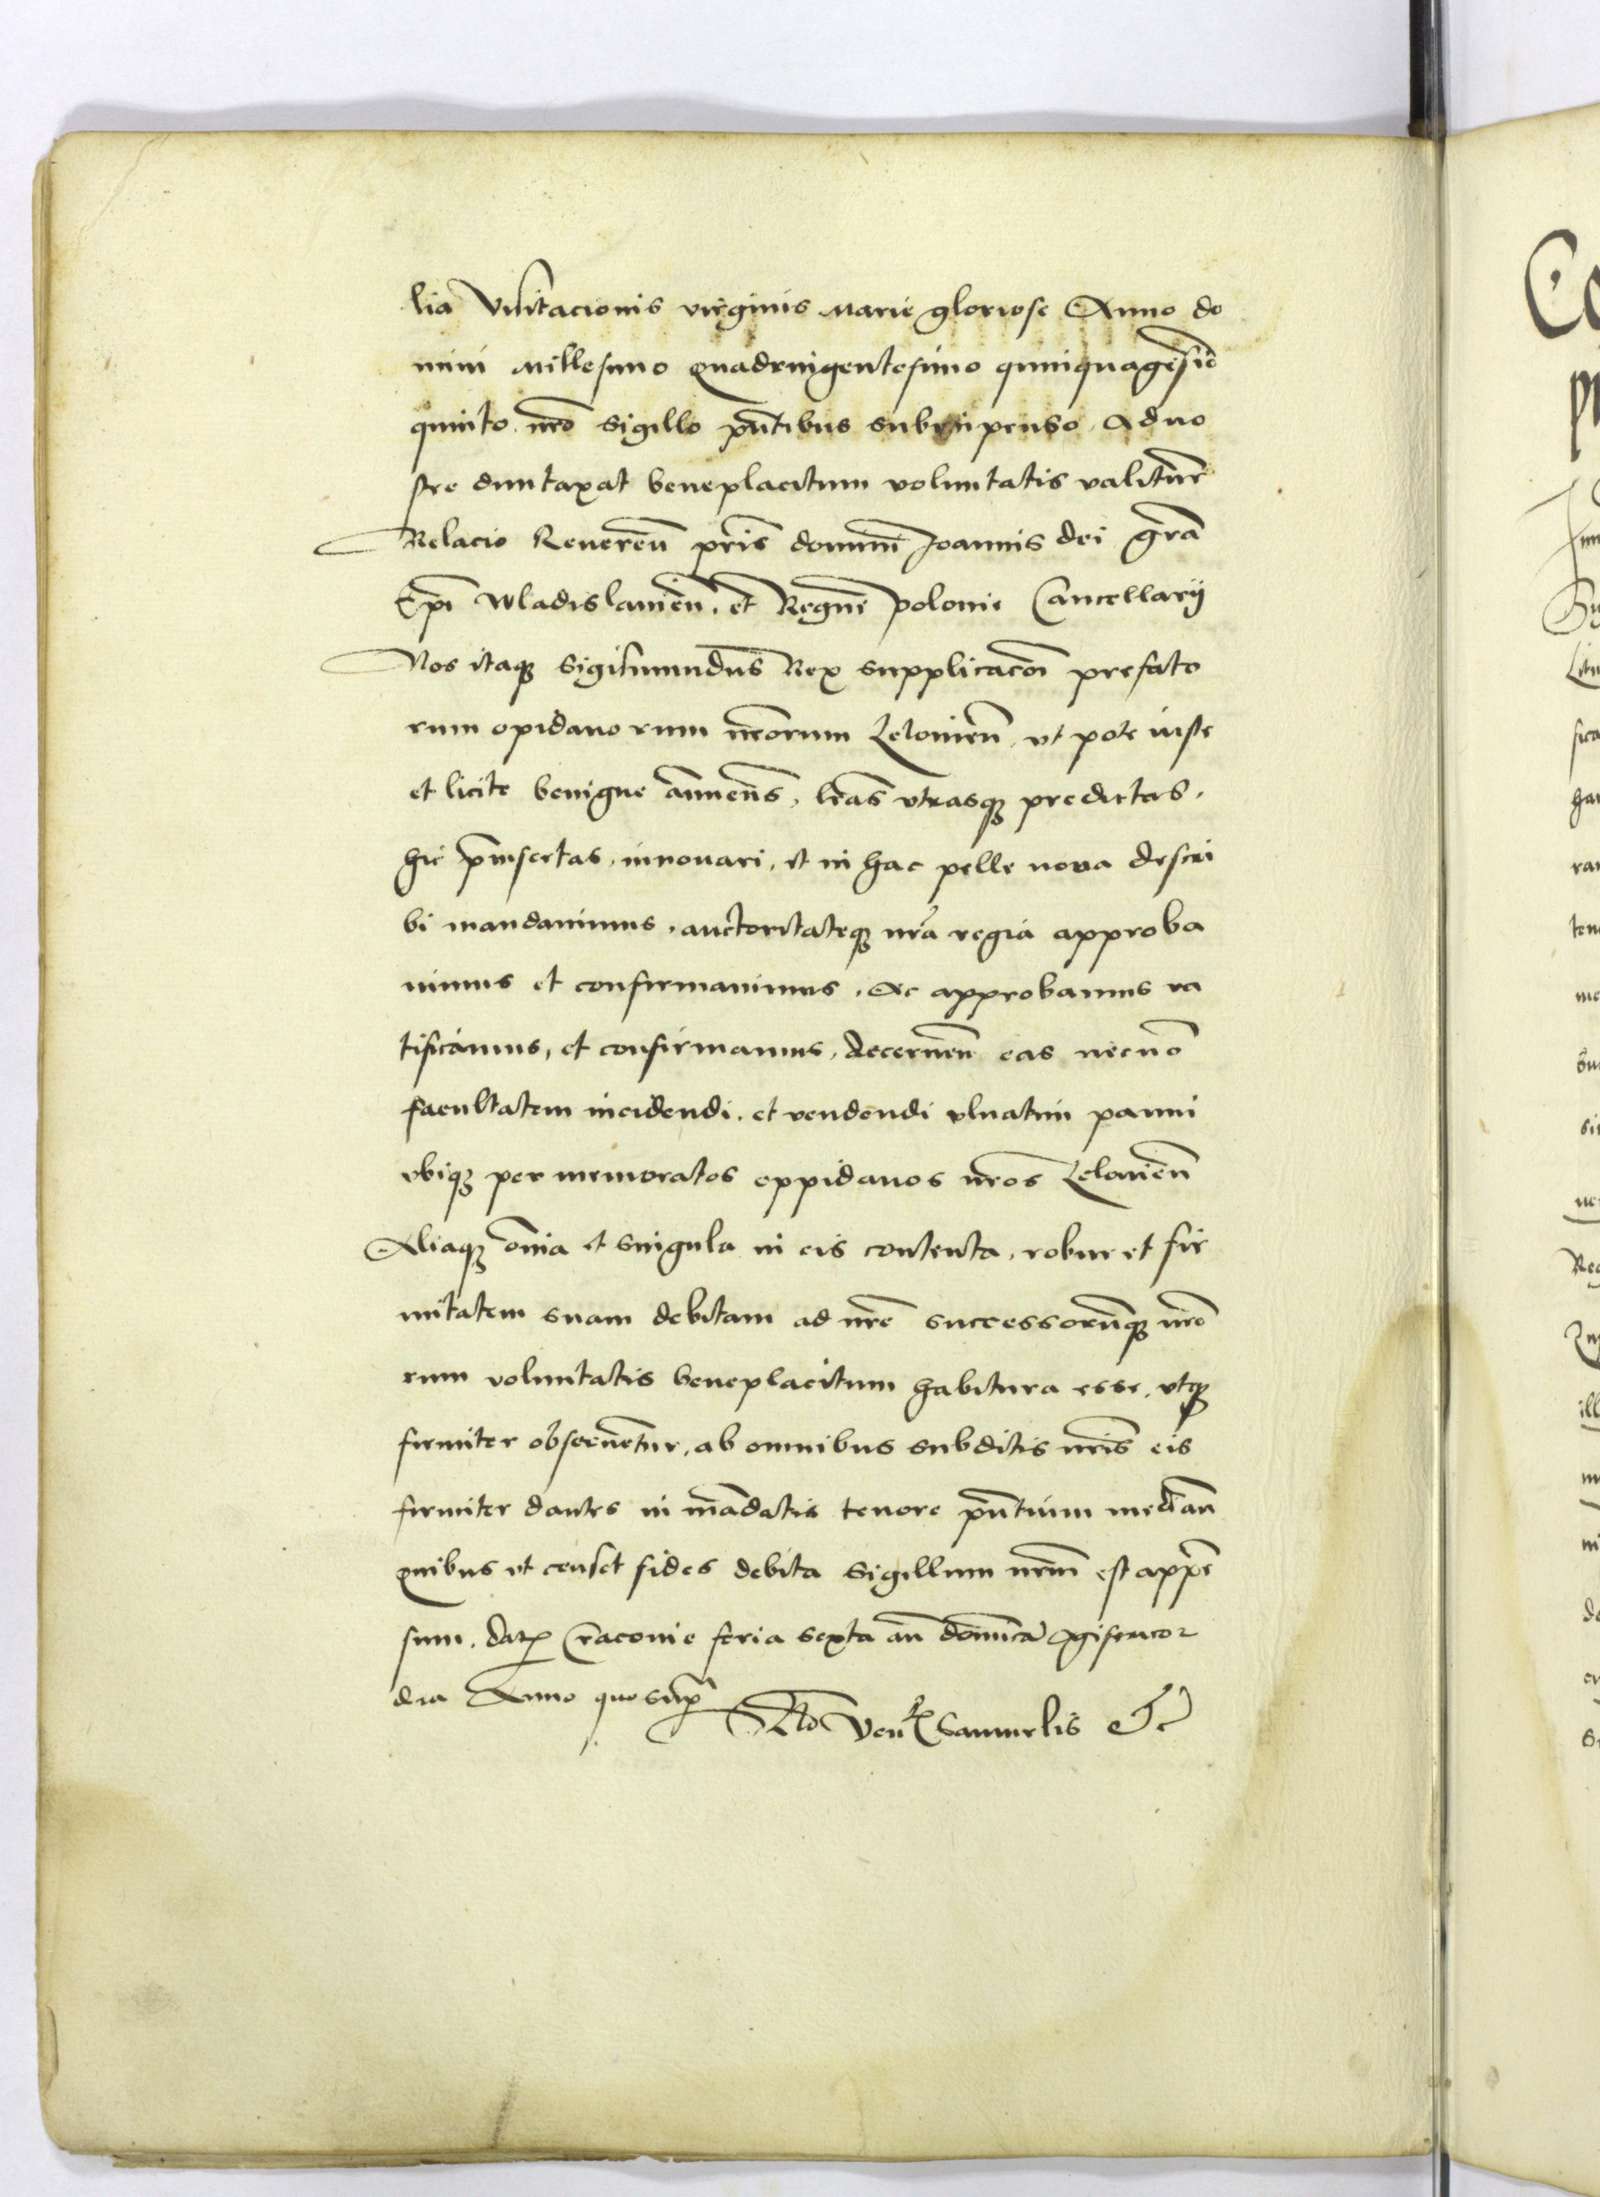 lia Visitacionis virginis Marie gloriose Anno do
mini Millesimo Quadringentesimo quinquagesio
quinto nro sigillo pntibus subimpenso Ad no
stre duntaxat beneplacitum voluntatis valitur
Relacio Reueren pris domini Joannis dei gra
Epi Wladislauien. et Regni Polonie Cancellarij
Nos itaq Sigismundus Rex supplicacoi prefato
rum opidanorum nrorum Lelouien vt pote iuste
et licite benigne annuens, lras vtrasq predictas.
hic pinsertas innouari, et in hac pelle noua descri
bi mandauimus, auctoritateq nra regia approba
uimus et confirmauimus. Ac approbamus ra
tificamus, et confirmamus, decernen eas necno
facultatem incidendi. et vendendi vlnatim panni
vbiq per memoratos oppidanos nros Lelouien
Aliaq omia et singula in eis contenta, robur et fir
mitatem suam debitam ad nre successorumq nro
rum voluntatis beneplacitum habitura esse, vtq
firmiter obseruentur, ab omnibus subditis nris eis
firmiter dantes in madatis tenore pntium median
Quibus vt censet fides debita Sigillum nrm est appe
sum. Dat Cracouie feria sexta an dominica Misericor
dia Anno quo sup
Ad Ven Samuelis Etc
Co